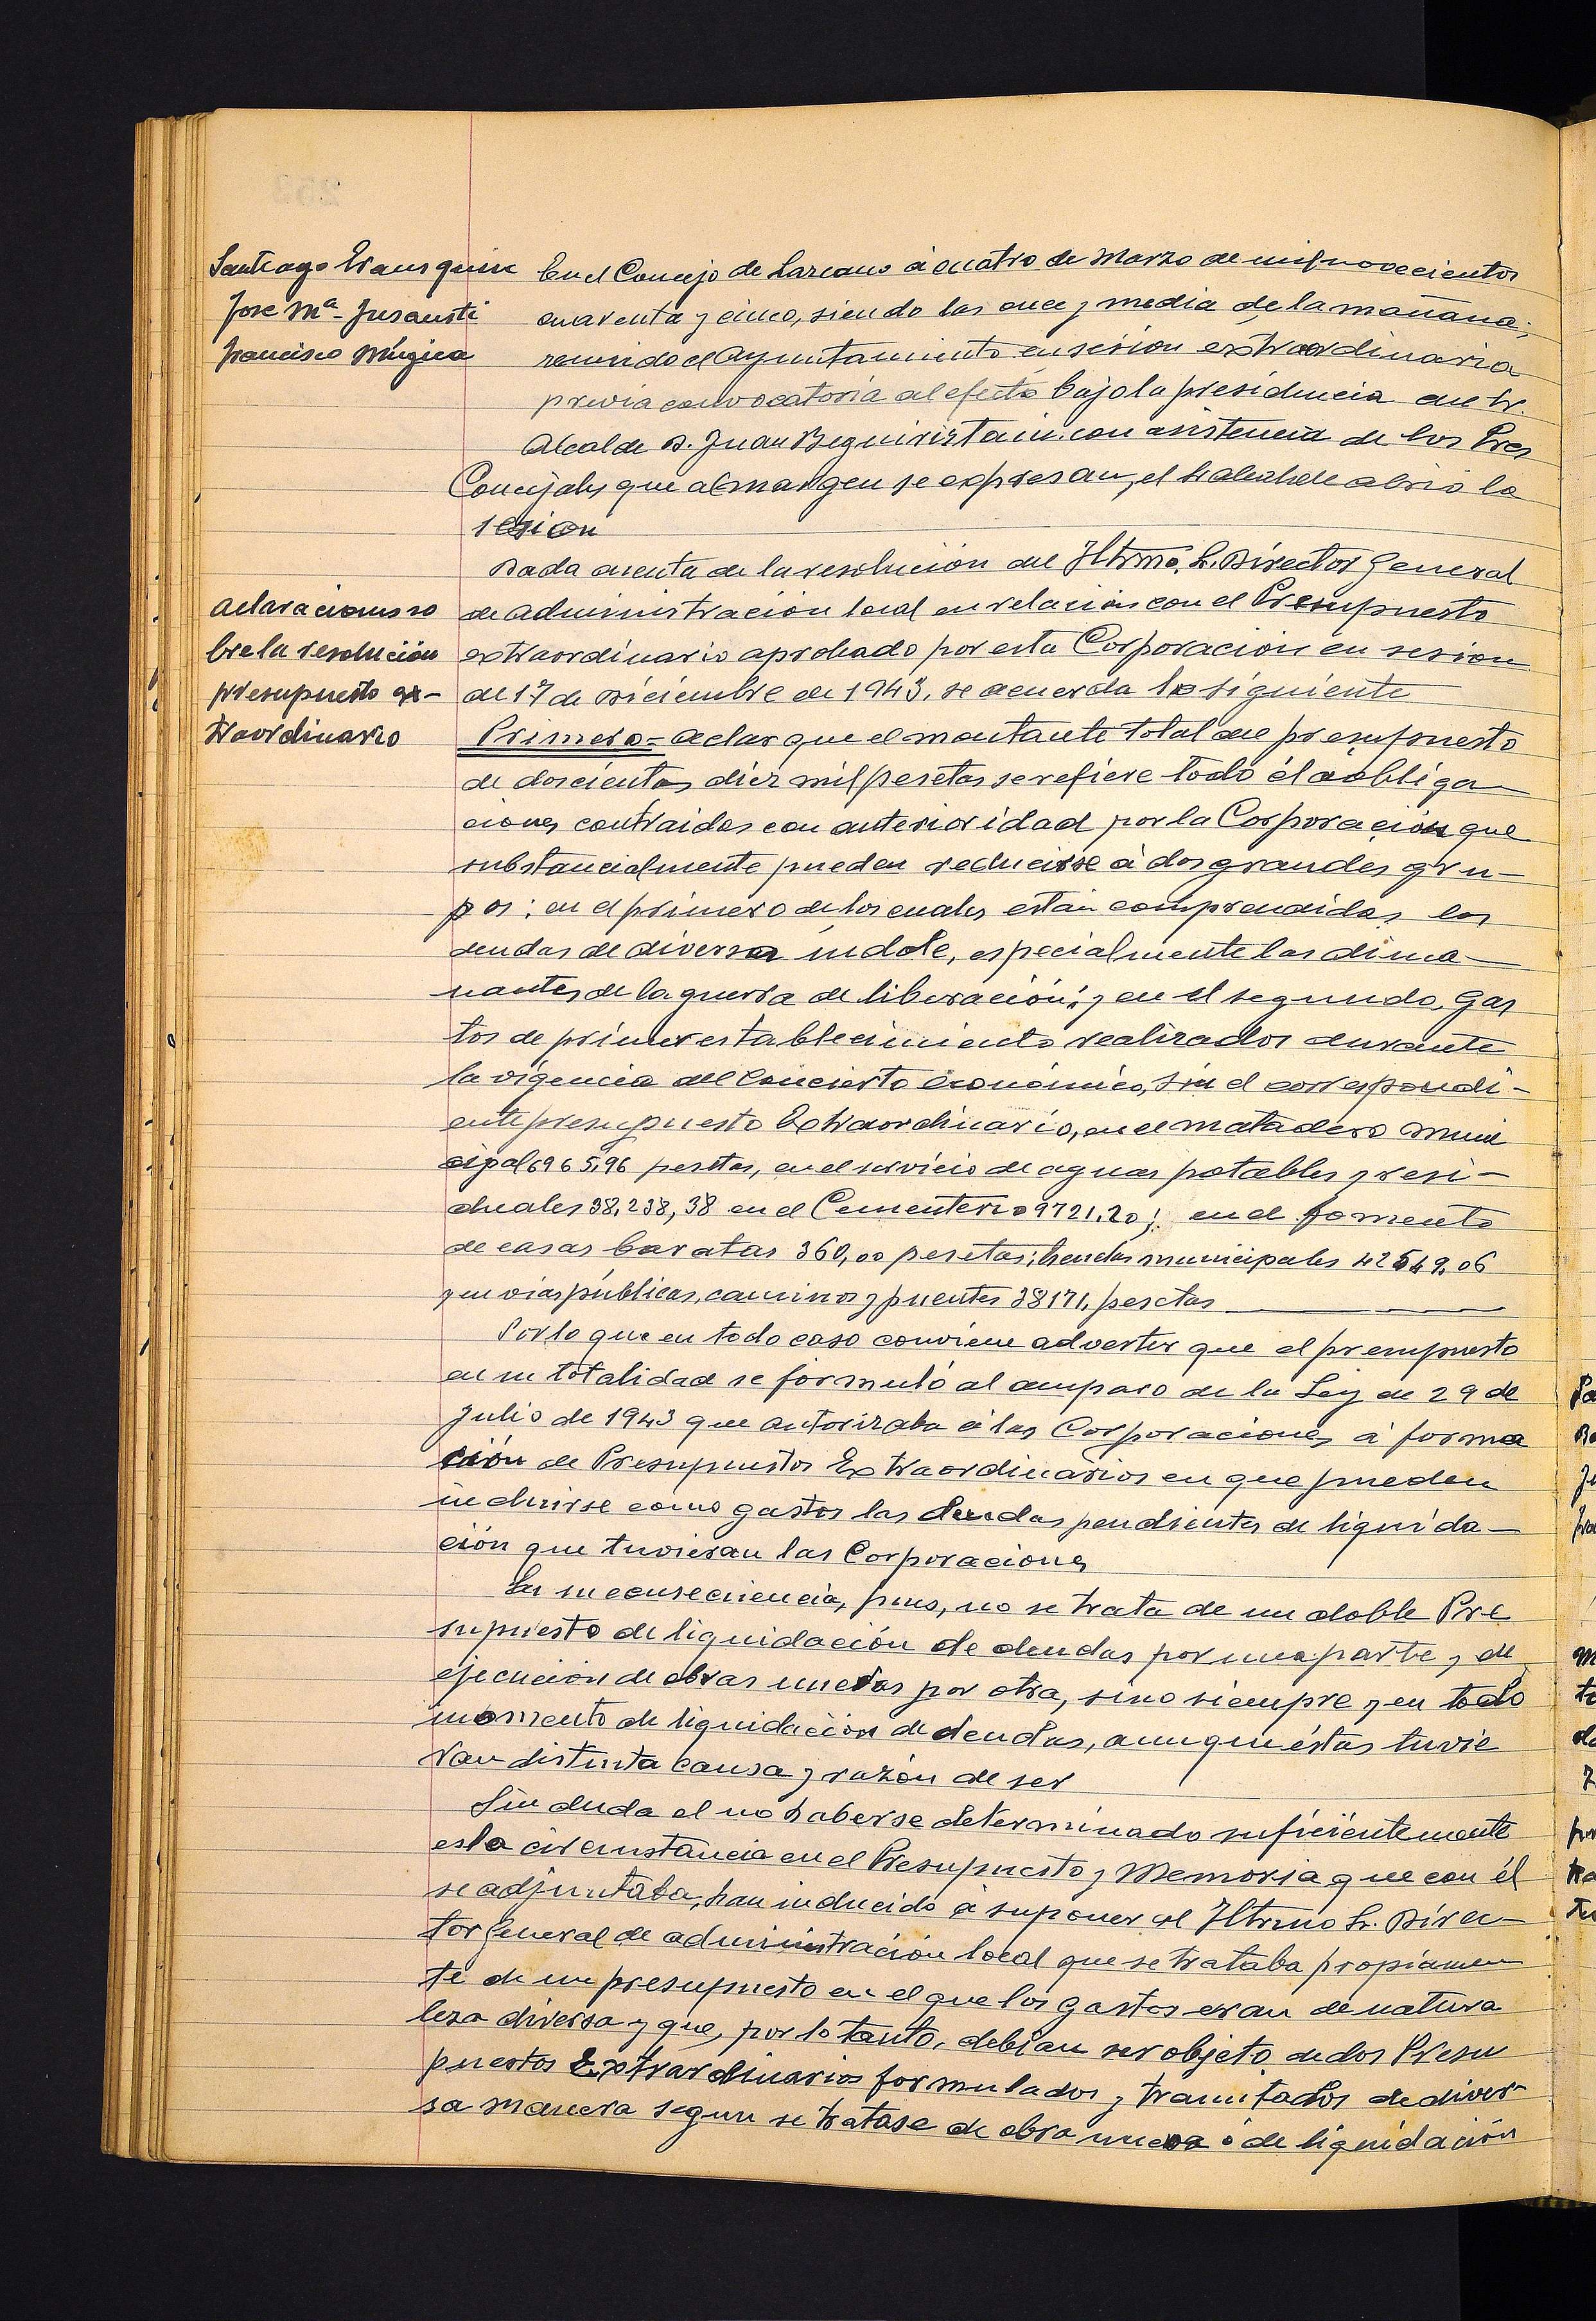 Santiago
Jose Mª
Francisco Múgica
En el Concejo de Lazcano á cuatro de Marzo de mil novecientos
cuarenta y cinco, siendo las once y media de la mañana;
reunido el Ayuntamiento en sesion extraordinaria
previa convocatoria al efecto bajo la presidencia del Sr.
Alcalde D. Juan Beguiristain con asistencia de los Sres
Concejales que al margen se expresan, el Sr alcalde abrió la
sesion
Dada cuenta de la resolución del Iltrmo. Sr. Director General
aclaraciones so
bre la resolución
presupuesto ex-
traordinario
de administración local en relación con el Presupuesto
extraordinario aprobado por esta Corporación en sesion
del 17 de Diciembre de 1943, se acuerda lo siguiente
Primero = aclar que el montante total del presupuesto
de doscientas diez mil pesetas se refiere todo él a obliga
ciones contraidas con anterioridad por la Corporación que
substancialmente pueden reducirse á dos grandes gru-
pos; en el primero de los cuales están comprendidas las
deudas de diversa indole, especialmente las dima-
nantes de la guerra de liberación; y en el segundo, gas
tos de primer establecimiento realizados durante
la vigencia del Concierto económico, sin el correspondi-
ente presupuesto Extraordinario, en el matadero muni
cipal 6965,96 pesetas, en el servicio de aguas potables y resi-
duales 38.238,38 en el Cementerio 9721.20; en el fomento
de casas baratas 360,00 pesetas; deudas municipales 42549.06
y en vias públicas, caminos y puentes 38171, pesetas
Por lo que en todo caso conviene advertir que el presupuesto
en su totalidad se formuló al amparo de la Ley de 29 de
Julio de 1943 que autorizaba á las Corporaciones á forma
ción de Presupuestos Extraordinarios en que pueden
incluirse como gastos las deudas pendientes de liquida-
ción que tuviesan las Corporaciones
En su consecuencia, pues, no se trata de un doble Pre
supuesto de liquidación de deudas por una parte y de
ejecución de obras nuevas por otra, sino siempre y en todo
momento de liquidación de deudas, aunque éstas tuvie
ran distinta causa y razón de ser
Sin duda el no haberse determinado suficientemente
esta circunstancia en el Presupuesto y Memoria que con él
se adjuntaba, han inducido á suponer al Iltrmo Sr. Direc-
tor General de administración local que se trataba propiamen
te de un presupuesto en el que los gastos eran de natura
leza diversa y que, por lo tanto, debian ser objeto de dos Presu
puestos Extrardinarios formulados y tramitados de diver-
sa manera segun se tratase de obra nueva ó de liquidación